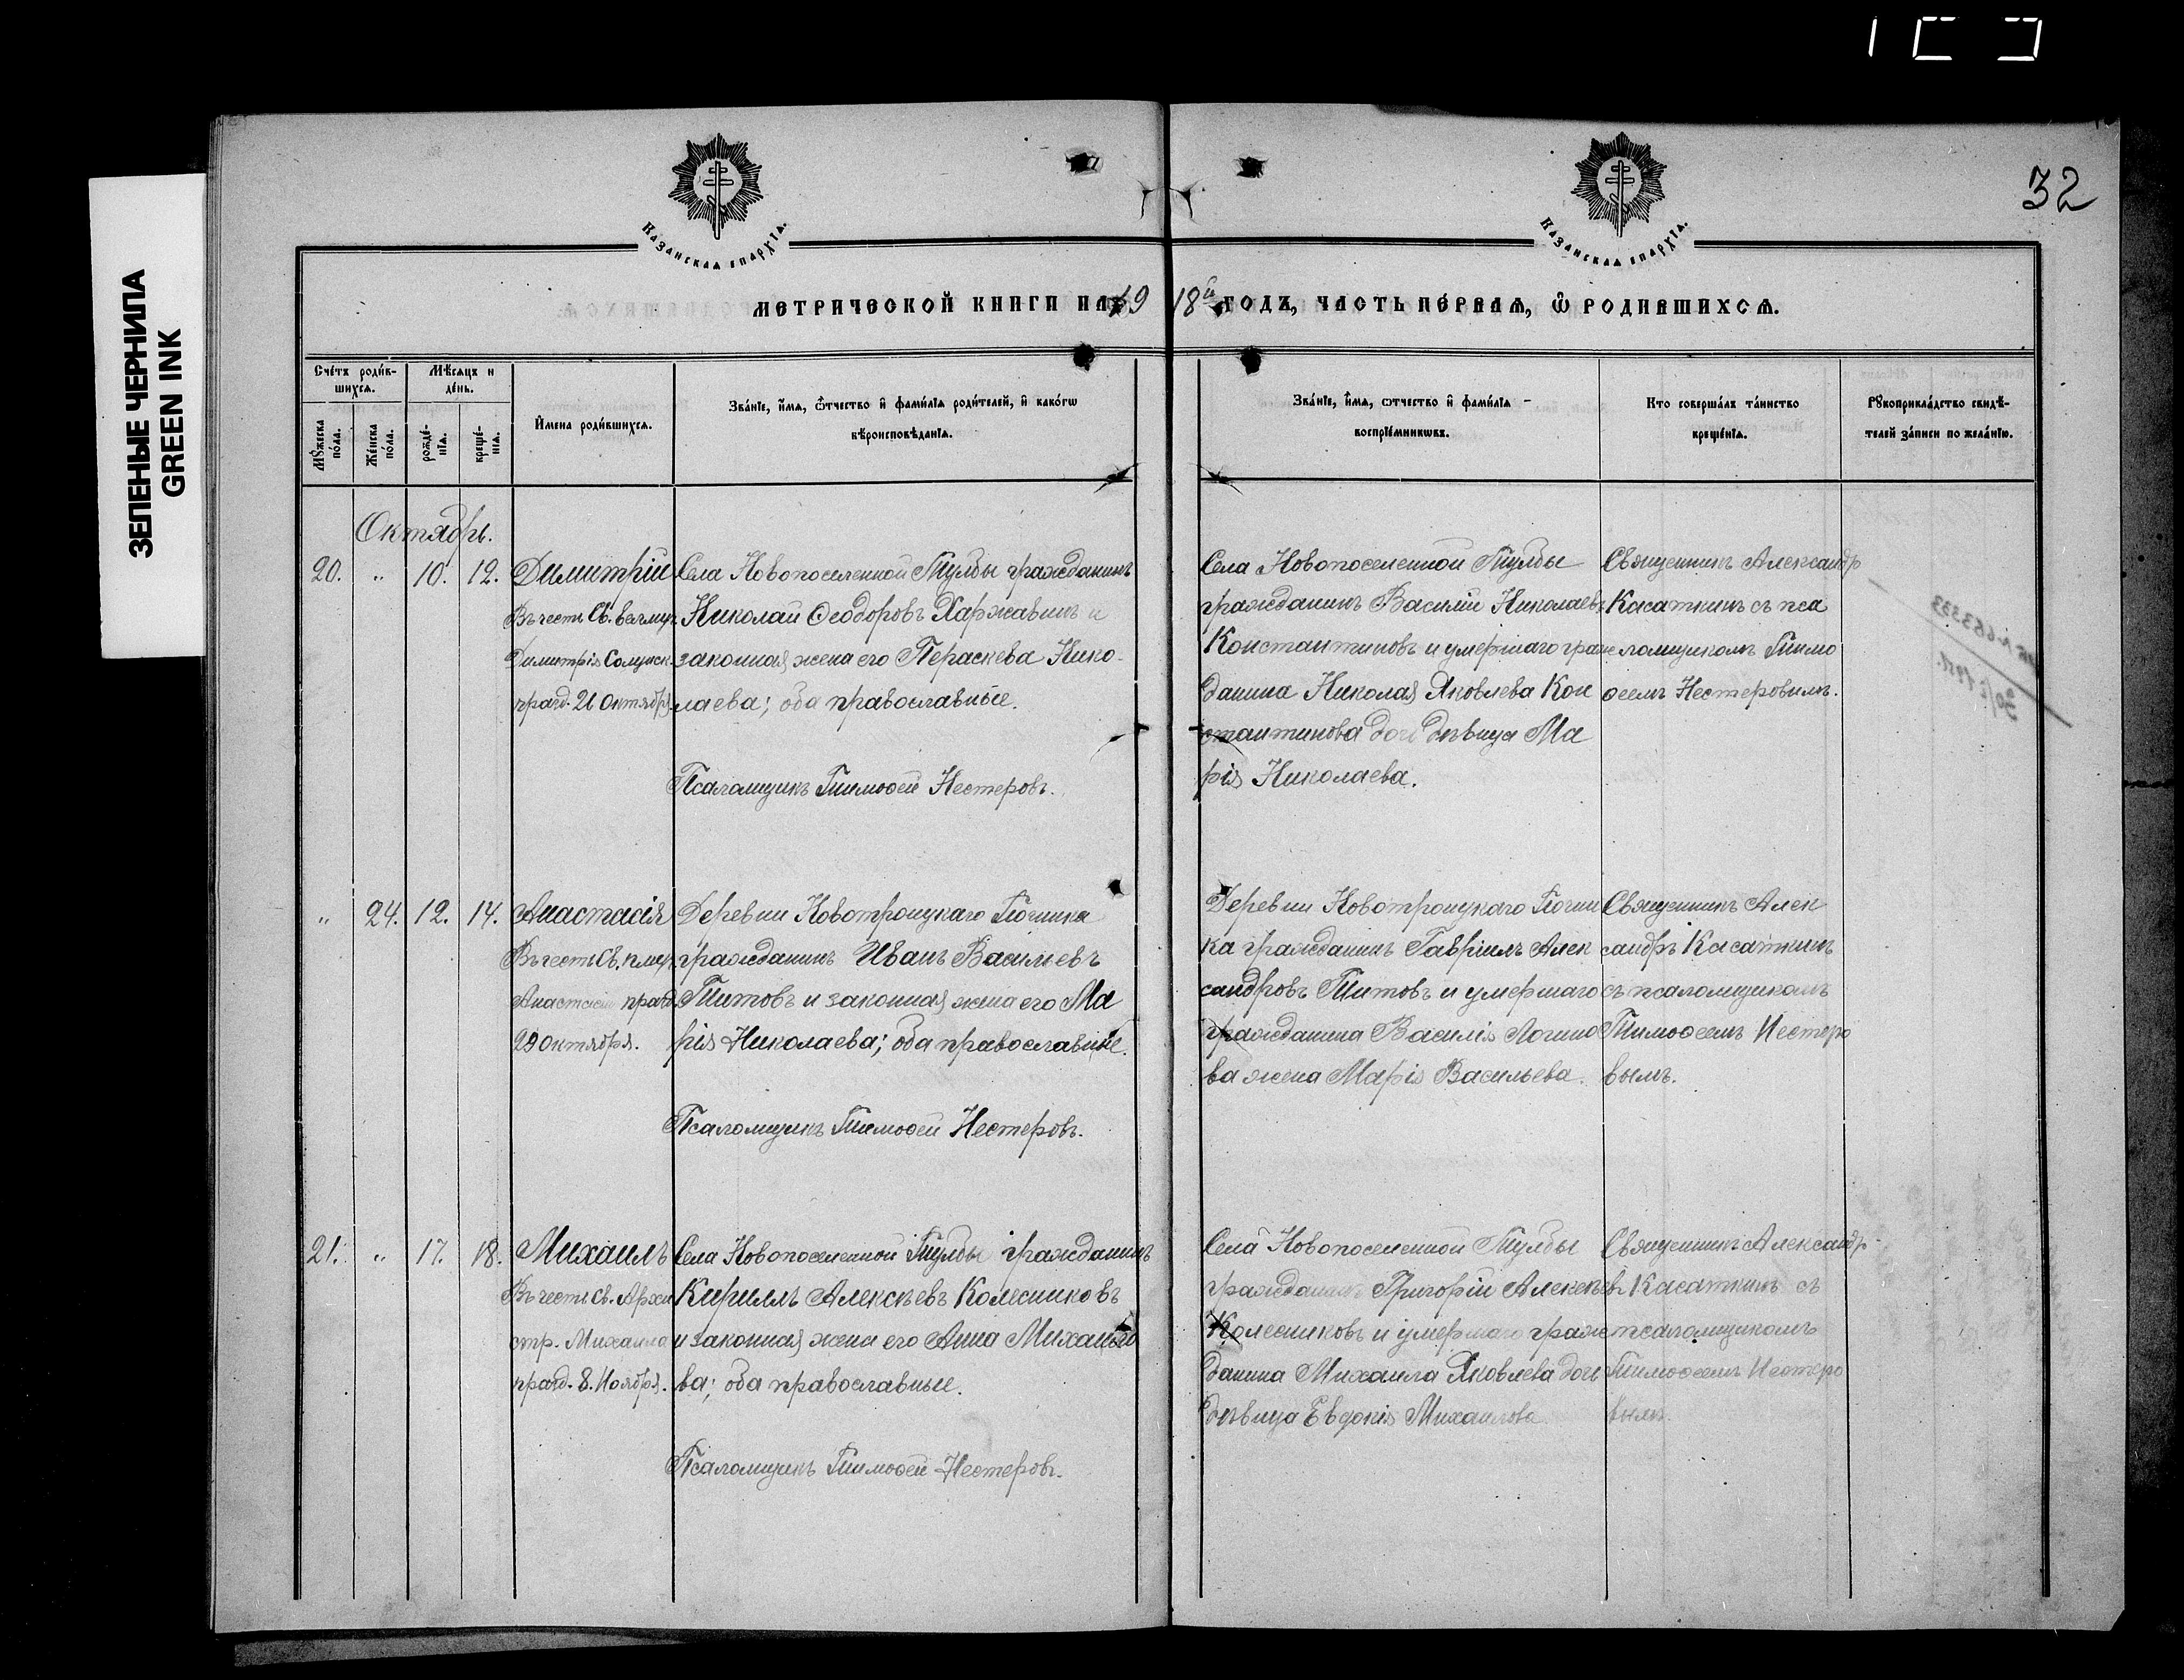 ЗЕЛЕНЫЕ ЧЕРНИЛА
GREEN INK
32
Казанская епархїѧ.
Казанская епархїѧ.
МЕТРИЧЕСКОЙ КНИГИ НА 1918й ГОДЪ, ЧАСТЬ ПЕ́РВАѦ, Ѽ РОДИВШИХСѦ.
Сче́тъ роди́в-
шихсѧ.
Мѣ́сѧцъ и
де́нь.
Мꙋ́жеска
по́ла.
Же́нска
по́ла.
рожде́-
нїѧ.
креще́-
нїѧ.
И҆мена роди́вшихсѧ.
Зва́нїе, и҆́мѧ, ѻ҆́тчество и҆ фами́лїѧ роди́телей, и҆ како́гѡ
вѣроисповѣ́данїѧ.
Зва́нїе, и҆́мѧ, ѻтчество и҆ фами́лїѧ
воспрїе́мникѡвъ.
Кто соверша́лъ та́инство
креще́нїѧ.
Рꙋкоприкла́дство свидѣ́-
телей за́писи по жела́нїю.
Октябрь.
20. " 10. 12.
Димитрій
Въ честь Св. велмуч.
Димитрія Солунск.
празд. 26 Октября.
Села Новопоселенной Тулбы гражданинъ
Николай Ѳеодоровъ Харжавинъ и
законная жена его Пераскева Нико-
лаева; оба православные.
Псаломщикъ Тимоѳей Нестеровъ.
Села Новопоселенной Тулбы
гражданинъ Василій Николаевъ
Константиновъ и умершаго граж
данина Николая Яковлева Кон
стантинова дочь дѣвица Ма
рія Николаева.
Священникъ Александр
Касаткинъ съ пса
ломщикомъ Тимо
ѳеемъ Нестеровымъ.
" 24. 12. 14.
Анастасія
Въ честь Св. пмуч.
Анастасіи празд.
29 октября.
Деревни Новотроицкаго Починка
гражданинъ Иванъ Васильевъ
Титовъ и законная жена его Ма
рія Николаева; оба православные.
Псаломщикъ Тимоѳей Нестеровъ.
Деревни Новотроицкаго Почин
ка гражданинъ Гавріилъ Алек
сандровъ Титовъ и умершаго
гражданина Василія Логино
ва жена Марія Васильева.
Священникъ Алек
сандръ Касаткинъ
съ псаломщикомъ
Тимоѳеемъ Нестеро
вымъ.
21. " 17. 18.
Михаилъ
Въ честь Св. Архи
стр. Михаила
празд. 8. Ноября.
Села Новопоселенной Тулбы гражданинъ
Кириллъ Алексѣевъ Колесниковъ
и законная жена его Анна Михайло
ва; оба православные.
Псаломщикъ Тимоѳей Нестеровъ.
Села Новопоселенной Тулбы
гражданинъ Григорій Алексѣевъ
Колесниковъ и умершаго граж
данина Михаила Яковлева дочь
дѣвица Евдокія Михаилова.
Священникъ Александр
Касаткинъ съ
псаломщикомъ
Тимоѳеемъ Нестеро
вымъ.